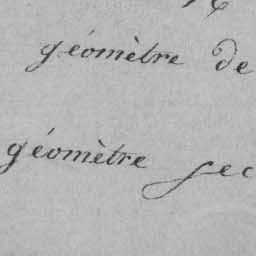 géomètre de
géomètre sec